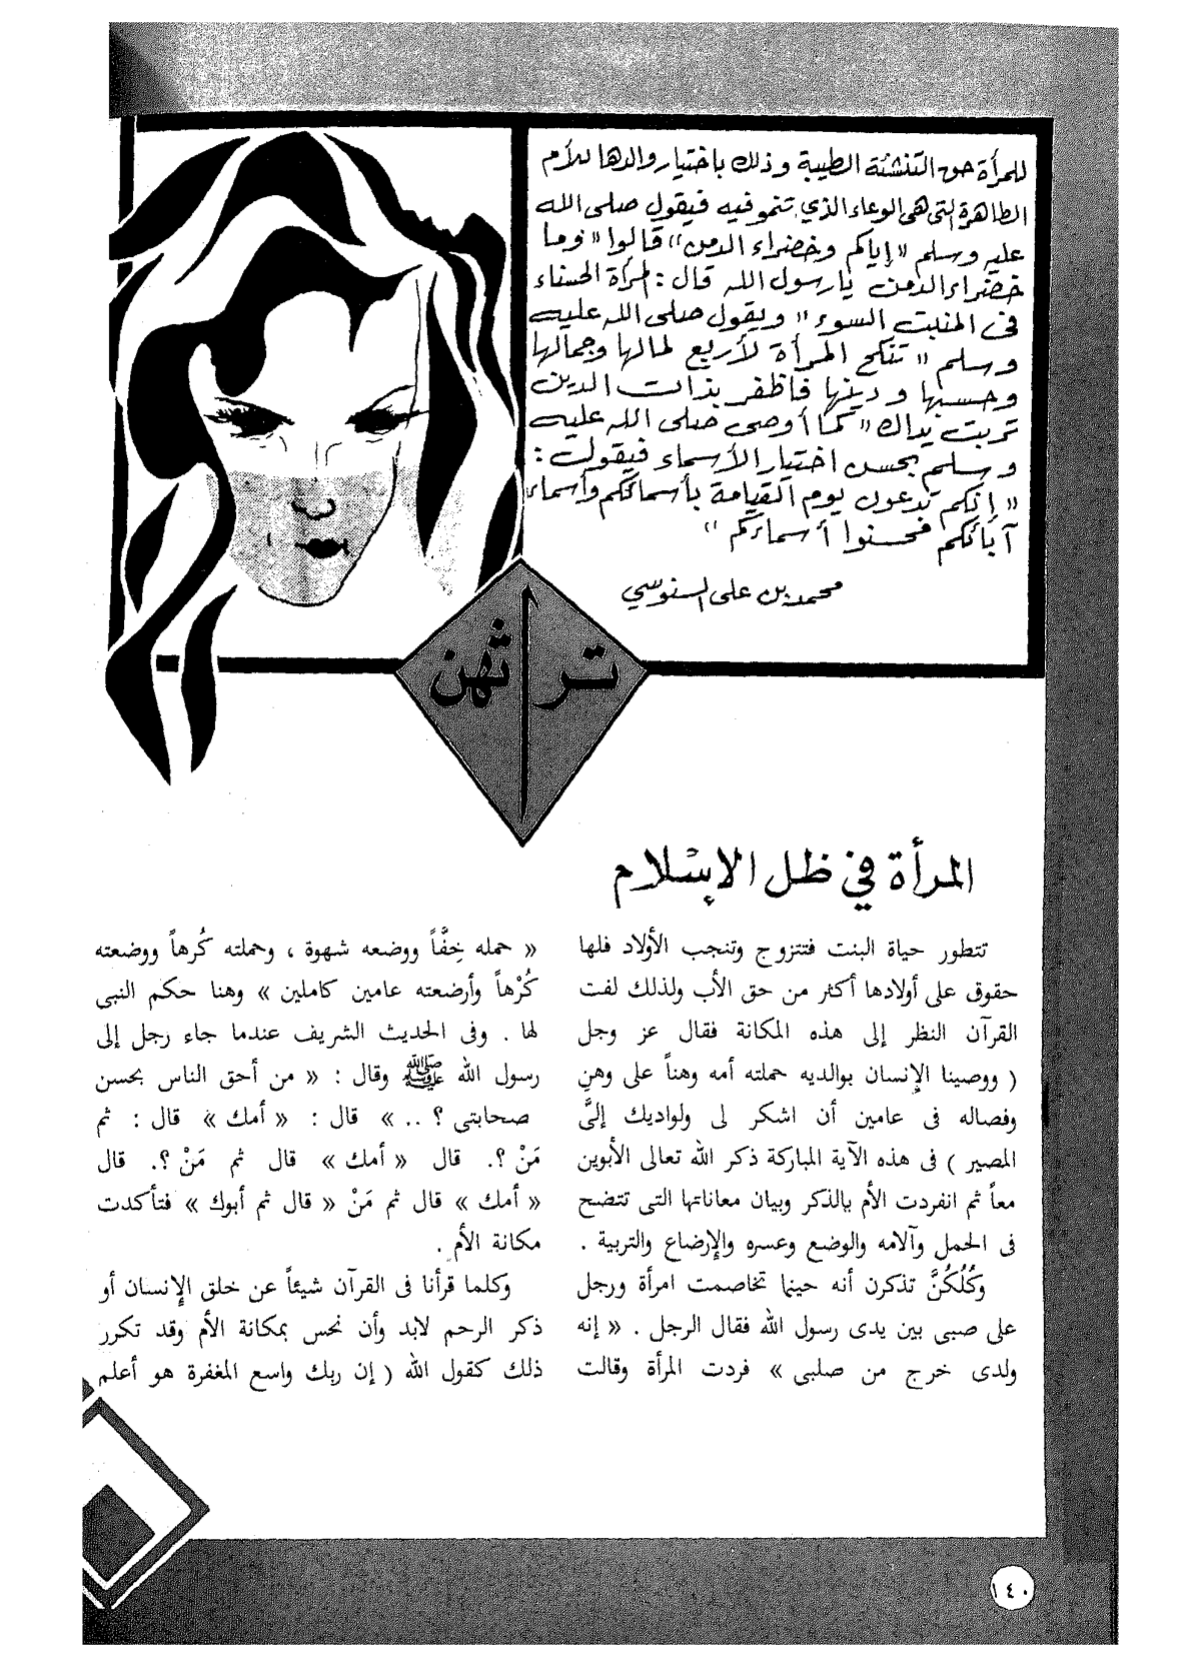 للمرأة حق التنشئة الطيبة وذلك باختيار والدها للأم
الطاهرة التى هى الوعاء الذي تنمو فيه فيقول صلى الله
عليه وسلم « إياكم وخضراء الدمن » قالوا « وما
خضراء الدمن يا رسول الله قال : المرأة الحسناء
فى المنبت السوء » ويقول صلى الله عليه
وسلم « تنكح المرأة لأربع لمالها وجمالها
وحسبها ودينها فاظفر بذات الدين
تربت يداك » كما أوصى صلى الله عليه
وسلم بحسن اختيار الأسماء فيقول :
« إنكم تدعون يوم القيامة بأسمائكم وأسماء
آبائكم فحسنوا أسمائكم »
محمد بن على السنوسي
تراثهن
المرأة في ظل الإسْلام
تتطور حياة البنت فتتزوج وتنجب الأولاد فلها
حقوق على أولادها أكثر من حق الأب ولذلك لفت
القرآن النظر إلى هذه المكانة فقال عز وجل
( ووصينا الإنسان بوالديه حملته أمه وهناً على وهنٍ
وفصاله فى عامين أن اشكر لى ولواديك إلىَّ
المصير ) فى هذه الآية المباركة ذكر الله تعالى الأبوين
معاً ثم انفردت الأم بالذكر وبيان معاناتها التى تتضح
فى الحمل وآلامه والوضع وعسره والإرضاع والتربية .
وكُلُكُنَّ تذكرن أنه حينما تخاصمت امرأة ورجل
على صبى بين يدى رسول الله فقال الرجل . « إنه
ولدى خرج من صلبى » فردت المرأة وقالت
« حمله خِفَّاً ووضعه شهوة ، وحملته كُرهاً ووضعته
كُرْهاً وأرضعته عامين كاملين » وهنا حكم النبى
لها . وفى الحديث الشريف عندما جاء رجل إلى
رسول الله ﷺ وقال : « من أحق الناس بحسن
صحابتى ؟ .. » قال : « أمك » قال : ثم
مَنْ ؟. قال « أمك » قال ثم مَنْ ؟. قال
« أمك » قال ثم مَنْ « قال ثم أبوك » فتأكدت
مكانة الأم .
وكلما قرأنا فى القرآن شيئاً عن خلق الإنسان أو
ذكر الرحم لابد وأن نحس بمكانة الأم وقد تكرر
ذلك كقول الله ( إن ربك واسع المغفرة هو أعلم
١٤٠